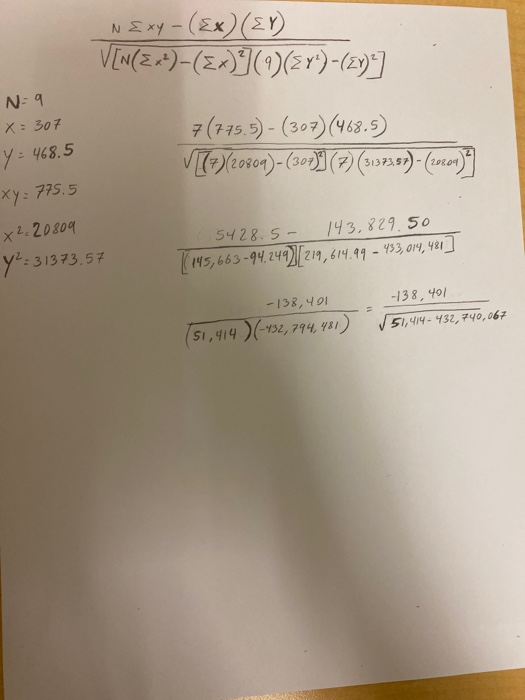 N Σ xy - (Σx)(ΣY)
√[N(Σx²)-(Σx)²](9)(ΣY²)-(ΣY)²]
N = 9
x = 307
y = 468.5
xy = 775.5
x² = 20809
y² = 31373.57
7(775.5) - (307)(468.5)
√[(7)(20809)-(307)²](7)(31373.57)-(20809)²]
5428.5 - 143,829.50
[(145,663-94.249)][219,614.99 - 433,014,481]
-138,401 = -138,401
(51,414)(-432,794,481) √51,414-432,740,067